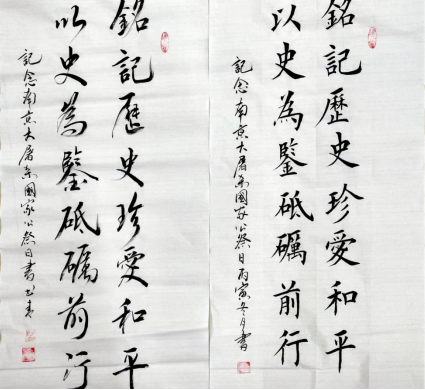 銘記歷史珍愛和平
以史為鑒砥礪前行
記念南京大屠杀國家公祭日丙寅冬月書
銘記歷史珍愛和平
以史為鑒砥礪前行
記念南京大屠杀國家公祭日書